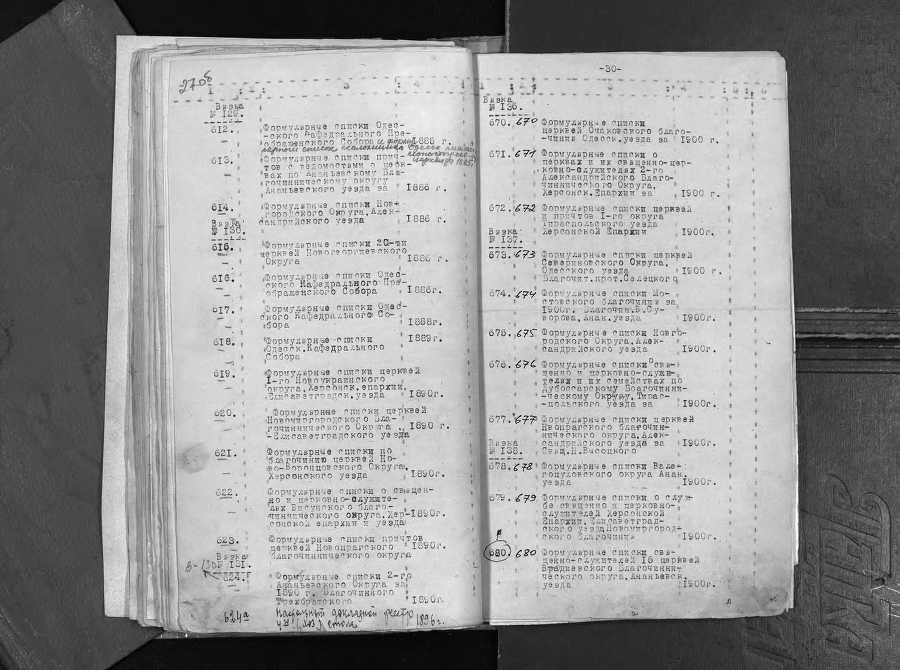 270б
1 2 3 4 5 6
Вязка
№ 129.
612. Формулярные списки Одес-
-ского Кафедрального Пре-
ображенского Собора 1885 г.
613. Формулярные списки прич-
тов с ведомостями о церк-
вах по Ананьевскому Бла-
гочинническому округу
Ананьевского уезда за 1886 г.
614. Формулярные списки Нов-
городского Округа, Алек-
сандрийского уезда 1886 г.
Вязка
№ 130.
615. Формулярные списки 20-ти
церквей Новогеоргиевского
Округа 1886 г.
616. Формулярные списки Одес-
ского Кафедрального Пре-
ображенского Собора 1886г.
617. Формулярные списки Одес-
ского Кафедрального Со-
бора 1888г.
618. Формулярные списки 1889г.
Одесск.Кафедрального
Собора
619. Формулярные списки церквей
I-го Новоукраинского
округа, Херсонск.епархии,
Елисаветградск.уезда 1890г.
620. Формулярные списки церквей
Новомиргородского Бла-
гочиннического Округа 1890 г.
-Елисаветградского уезда
621. Формулярные списки по
благочинию церквей Но-
во-Воронцовского Округа,
Херсонского уезда 1890г.
622. Формулярные списки о священ-
но и церковно-служите-
лях Висунского благо-
чиннического округа, Хер- 1890г.
сонской епархии и уезда
623. Формулярные списки причтов
церквей Новопрагского 1890г.
благочиннического округа
Вязка
№ 131.
624. Формулярные списки 2-го
Ананьевского Округа за
1890 г. Благочинного
1890г.
624а Настольный докладной реестр
1896г.
-30-
1 2 3 4 5 6
Вязка
№ 136.
670. 670 Формулярные списки
церквей Очаковского благо-
-чиния Одесск.уезда за 1900 г.
671. 671 Формулярные списки о
церквах и их священно-цер-
ковно-служителях 2-го
Александрийского Благо-
чиннического Округа,
Херсонск.Епархии за 1900 г.
672. 672 Формулярные списки церквей
и причтов I-го округа
Тираспольского уезда
Вязка Херсонской Епархии 1900г.
№ 137.
673. 673 Формулярные списки церквей
Севериновского Округа,
Одесского уезда 1900 г.
Благочит.прот.Селецкого
674. 674 Формулярные списки Мо-
стовского благочиния за
1900г. Благочин.В.Су-
ворова, Анан.уезда 1900г.
675. 675 Формулярные списки Новго-
родского Округа, Алек-
сандрийского уезда 1900г.
676. 676 Формулярные списки о свя-
щенно и церковно-служи-
телях и их семействах по
Дубоссарскому Благочинни-
-ческому Округу, Тирас-
-польского уезда за 1900г.
677. 677 Формулярные списки церквей
Новопрагского благочин-
нического округа, Алек-
Вязка сандрийского уезда за 1900г.
№ 138. Свящ.Н.Высоцкого
678. 678 Формулярные списки Вале-
гоцуловского округа Анан.
уезда 1900г.
679. 679 Формулярные списки о служ-
бе священно и церковно-
служителей Херсонской
Епархии, Елисаветград-
ского уезда, Новомиргород-
ского благочиния 1900г.
680. 680 Формулярные списки свя-
щенно-служителей 18 церквей
Врадиевского Благочинни-
ческого округа, Ананьевск.
уезда 1900г.